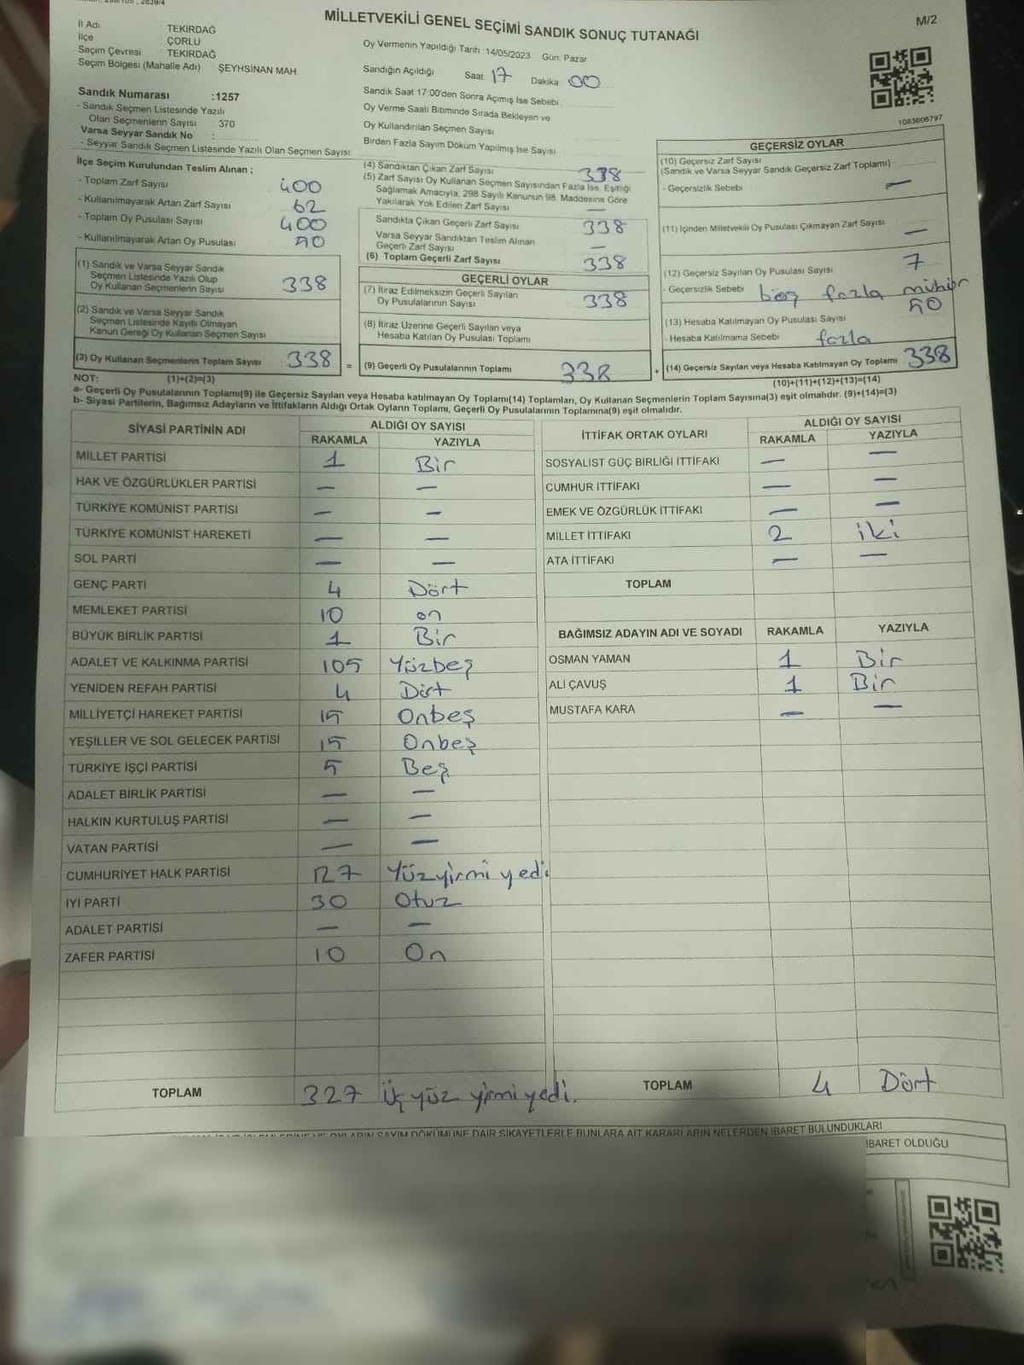 MİLLETVEKİLİ GENEL SEÇİMİ SANDIK SONUÇ TUTANAĞI
M/2
İl Adı TEKİRDAĞ
İlçe ÇORLU
Seçim Çevresi TEKİRDAĞ
Seçim Bölgesi (Mahalle Adı) ŞEYHSİNAN MAH
Sandık Numarası :1257
- Sandık Seçmen Listesinde Yazılı
Olan Seçmenlerin Sayısı 370
Varsa Seyyar Sandık No :
- Seyyar Sandık Seçmen Listesinde Yazılı Olan Seçmen Sayısı:
Oy Vermenin Yapıldığı Tarih :14/05/2023 Gün: Pazar
Sandığın Açıldığı Saat: 17 Dakika 00
Sandık Saat 17:00'den Sonra Açımış İse Sebebi
Oy Verme Saati Bitiminde Sırada Bekleyen ve
Oy Kullandırılan Seçmen Sayısı
Birden Fazla Sayım Döküm Yapılmış İse Sayısı
1083606797
İlçe Seçim Kurulundan Teslim Alınan ;
- Toplam Zarf Sayısı 400
- Kullanılmayarak Artan Zarf Sayısı 62
- Toplam Oy Pusulası Sayısı 400
- Kullanılmayarak Artan Oy Pusulası
(1) Sandık ve Varsa Seyyar Sandık
Seçmen Listesinde Yazılı Olup
Oy Kullanan Seçmenlerin Sayısı 338
(2) Sandık ve Varsa Seyyar Sandık
Seçmen Listesinde Kayıtlı Olmayan
Kanun Gereği Oy Kullanan Seçmen Sayısı
(3) Oy Kullanan Seçmenlerin Toplam Sayısı 338 =
(1)+(2)=(3)
(4) Sandıktan Çıkan Zarf Sayısı 338
(5) Zarf Sayısı Oy Kullanan Seçmen Sayısından Fazla İse, Eşitliği
Sağlamak Amacıyla, 298 Sayılı Kanunun 98. Maddesine Göre
Yakılarak Yok Edilen Zarf Sayısı —
Sandıkta Çıkan Geçerli Zarf Sayısı 338
Varsa Seyyar Sandıktan Teslim Alınan
Geçerli Zarf Sayısı —
(6) Toplam Geçerli Zarf Sayısı 338
GEÇERLİ OYLAR
(7) İtiraz Edilmeksizin Geçerli Sayılan
Oy Pusulalarının Sayısı 338
(8) İtiraz Üzerine Geçerli Sayılan veya
Hesaba Katılan Oy Pusulası Toplamı
(9) Geçerli Oy Pusulalarının Toplamı 338 +
GEÇERSİZ OYLAR
(10) Geçersiz Zarf Sayısı
(Sandık ve Varsa Seyyar Sandık Geçersiz Zarf Toplamı)
- Geçersizlik Sebebi —
(11) İçinden Milletvekili Oy Pusulası Çıkmayan Zarf Sayısı —
(12) Geçersiz Sayılan Oy Pusulası Sayısı 7
- Geçersizlik Sebebi fazla mühür
(13) Hesaba Katılmayan Oy Pusulası Sayısı
- Hesaba Katılmama Sebebi fazla
(14) Geçersiz Sayılan veya Hesaba Katılmayan Oy Toplamı 338
(10)+(11)+(12)+(13)=(14)
NOT:
a- Geçerli Oy Pusulalarının Toplamı(9) ile Geçersiz Sayılan veya Hesaba katılmayan Oy Toplam(14) Toplamları, Oy Kullanan Seçmenlerin Toplam Sayısına(3) eşit olmalıdır. (9)+(14)=(3)
b- Siyasi Partilerin, Bağımsız Adayların ve İttifakların Aldığı Ortak Oyların Toplamı, Geçerli Oy Pusulalarının Toplamına(9) eşit olmalıdır.
SİYASİ PARTİNİN ADI ALDIĞI OY SAYISI
RAKAMLA YAZIYLA
MİLLET PARTİSİ 1 Bir
HAK VE ÖZGÜRLÜKLER PARTİSİ — —
TÜRKİYE KOMÜNİST PARTİSİ — —
TÜRKİYE KOMÜNİST HAREKETİ — —
SOL PARTİ — —
GENÇ PARTİ 4 Dört
MEMLEKET PARTİSİ 10 on
BÜYÜK BİRLİK PARTİSİ 1 Bir
ADALET VE KALKINMA PARTİSİ 105 Yüzbeş
YENİDEN REFAH PARTİSİ 4 Dört
MİLLİYETÇİ HAREKET PARTİSİ 15 Onbeş
YEŞİLLER VE SOL GELECEK PARTİSİ 15 Onbeş
TÜRKİYE İŞÇİ PARTİSİ 5 Beş
ADALET BİRLİK PARTİSİ — —
HALKIN KURTULUŞ PARTİSİ — —
VATAN PARTİSİ — —
CUMHURİYET HALK PARTİSİ 127 Yüzyirmi yedi
İYİ PARTİ 30 Otuz
ADALET PARTİSİ — —
ZAFER PARTİSİ 10 On
TOPLAM 327 Üçyüz yirmiyedi.
İTTİFAK ORTAK OYLARI ALDIĞI OY SAYISI
RAKAMLA YAZIYLA
SOSYALİST GÜÇ BİRLİĞİ İTTİFAKI — —
CUMHUR İTTİFAKI — —
EMEK VE ÖZGÜRLÜK İTTİFAKI — —
MİLLET İTTİFAKI 2 iki
ATA İTTİFAKI — —
TOPLAM
BAĞIMSIZ ADAYIN ADI VE SOYADI RAKAMLA YAZIYLA
OSMAN YAMAN 1 Bir
ALİ ÇAVUŞ 1 Bir
MUSTAFA KARA — —
TOPLAM 4 Dört
OYLARIN SAYIM DÖKÜMÜNE DAİR ŞİKAYETLERLE BUNLARA AİT KARARLARIN NELERDEN İBARET BULUNDUKLARI
İBARET OLDUĞU